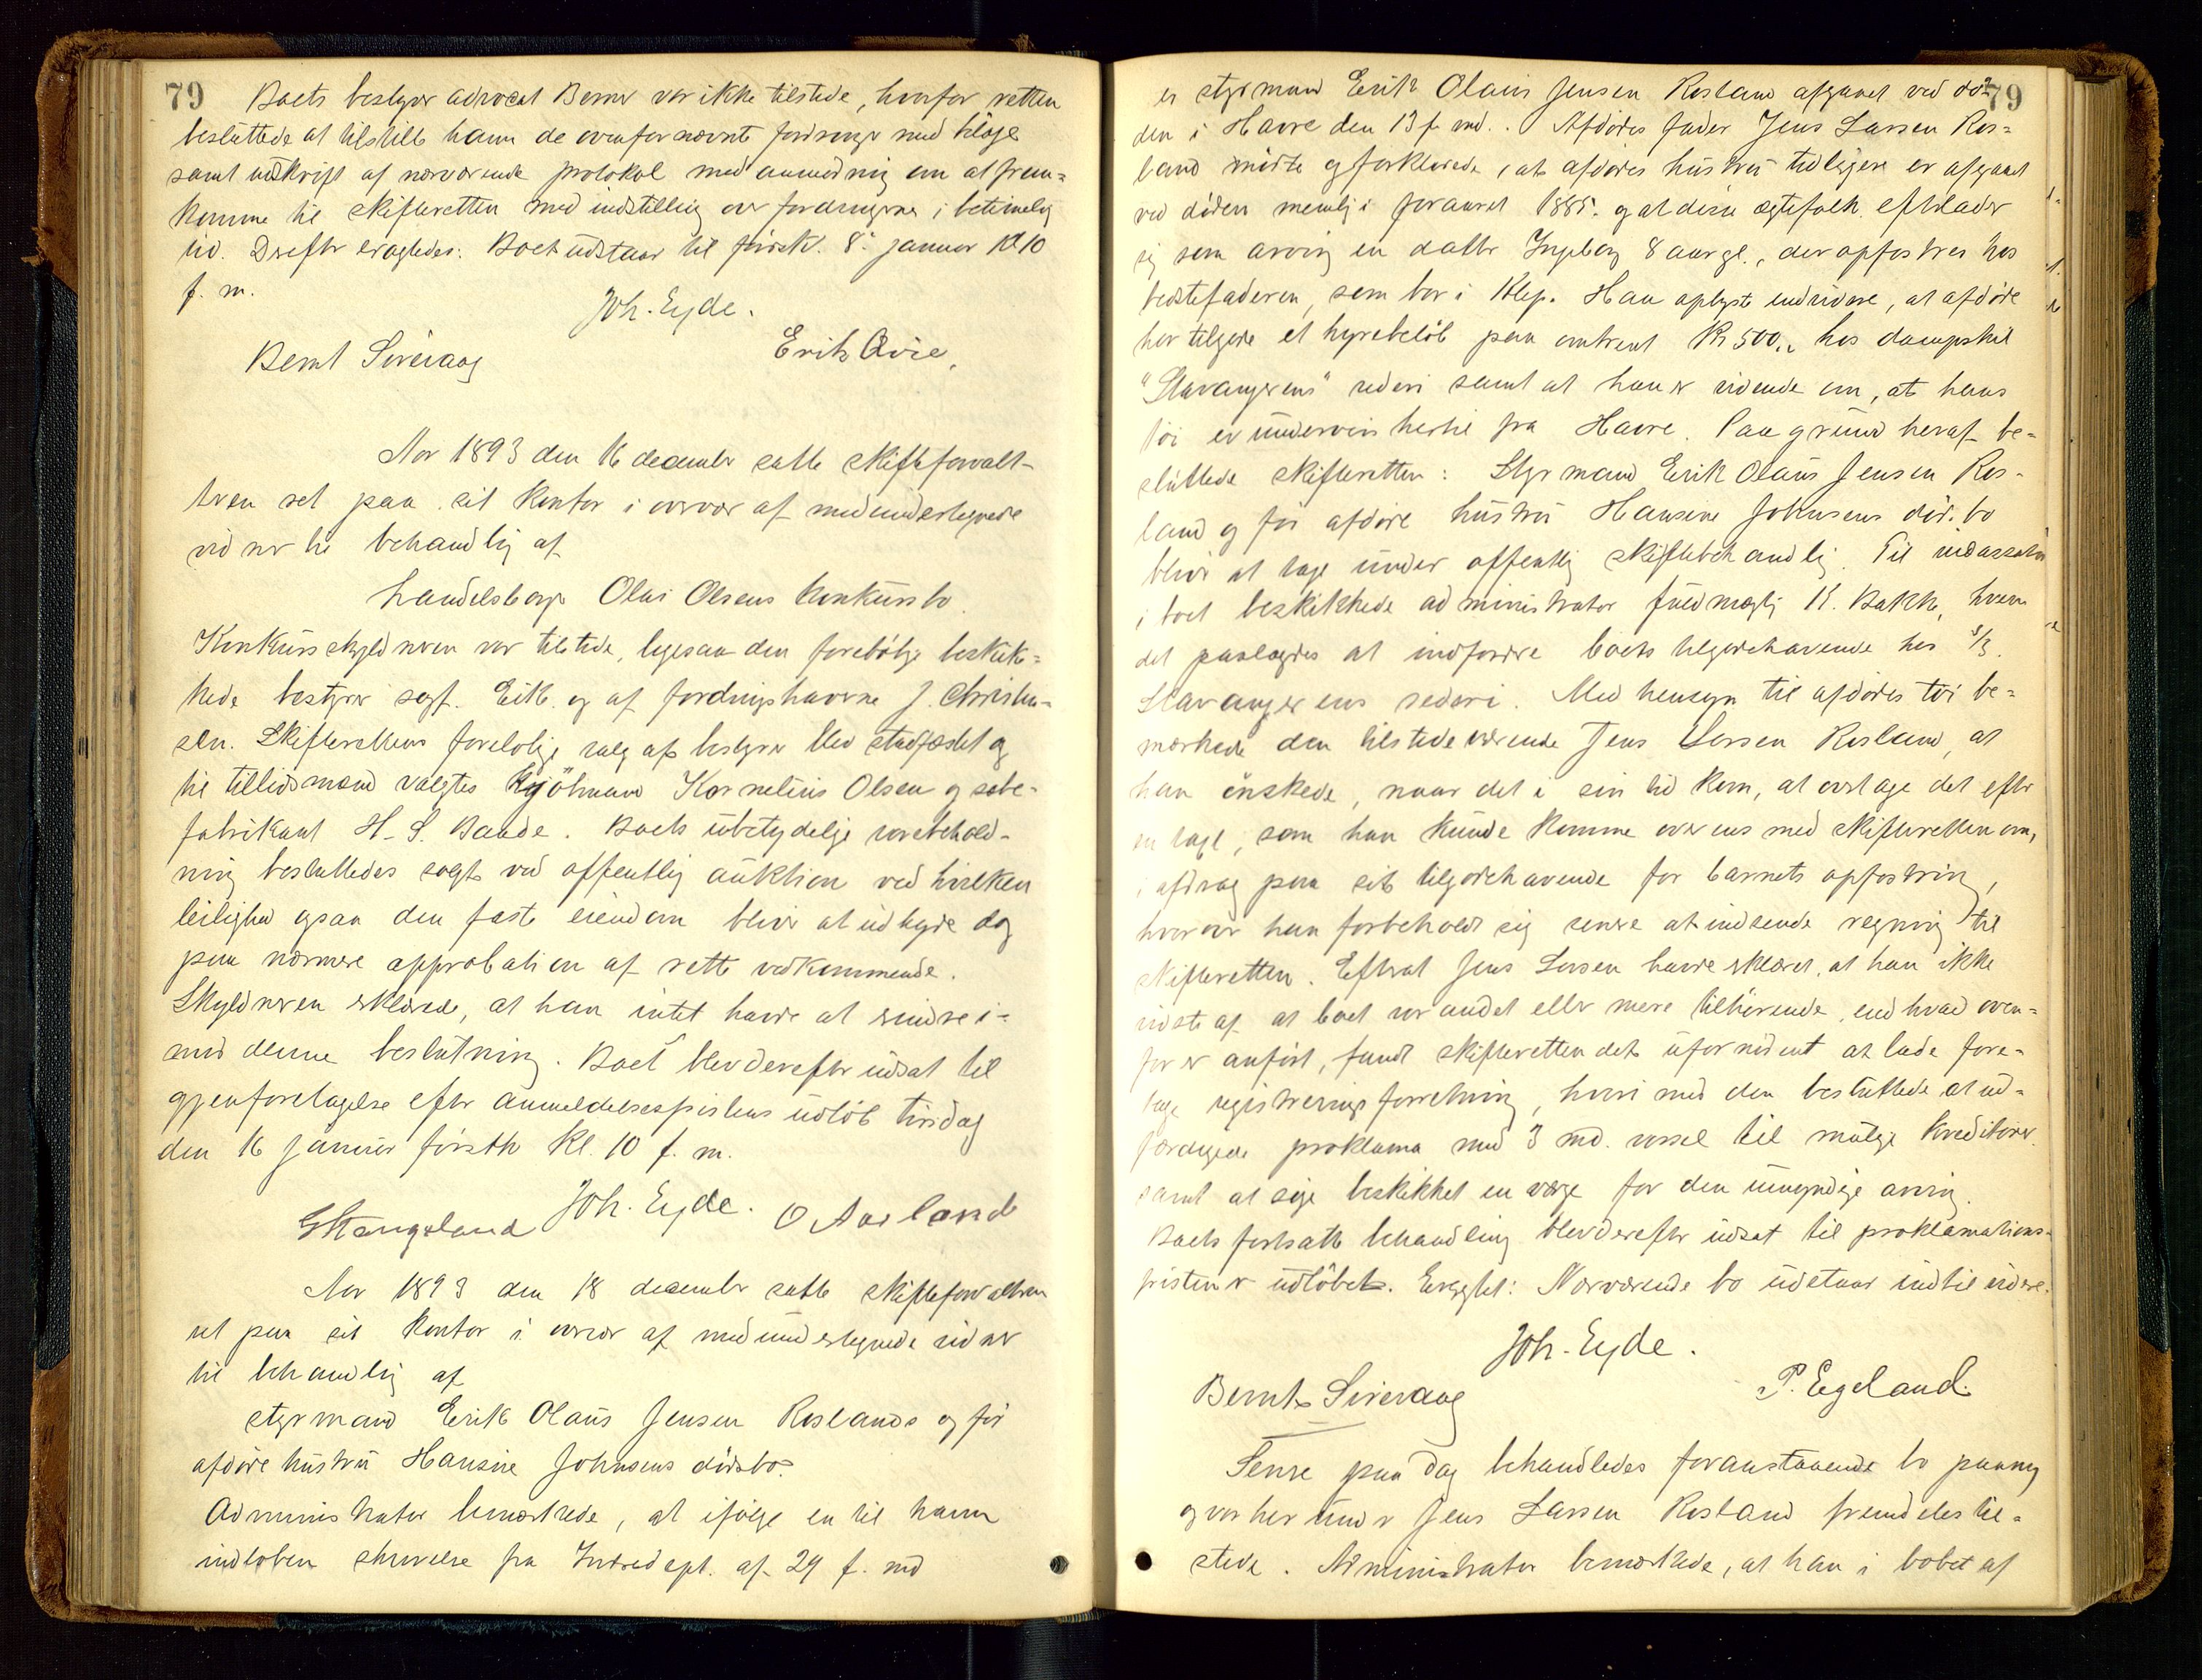 79
Boets bestyrer advocat Berner var ikke tilstede, hvorfor retten
besluttede at tilstille ham de ovenfornævnte fordringer med bilage
samt udskrift af nærværende protokol med anmodning om at frem=
komme til skifteretten med indstilling over fordringerne i betimelig
tid. Derefter eragtedes: Boet udstaar til førstk. 8. januar kl 10
f. m.
Joh. Eyde.
Bernt Sirevaag
Erik
Aar 1893 den 16 december satte skifteforvalt-
eren ret paa sit kontor i overvær af medundertegnede
vidner til behandling af
handelsborger Olai Olsens konkursbo.
Konkursskyldneren var tilstede, ligesaa den foreløbige beskik=
kede bestyrer sagf. Eik og af fordringshaverne J. Christen=
sen. Skifterettens foreløbige valg af bestyrer blev stadfæstet og
til tillidsmænd valgtes kjøbmand Kornelius Olsen og sæbe-
fabrikant H. S. Baade. Boets ubetydelige varebehold-
ning besluttedes solgt ved offentlig auktion ved hvilken
leilighed ogsaa den faste eiendom bliver at udbyde dog
paa nærmere approbation af rette vedkommende.
Skyldneren erklærede, at han intet havde at erindre i-
mod denne beslutning. Boet blev derefter udsat til
gjenforetagelse efter anmeldelsesfristens udløb tirsdag
den 16 januar førstk kl. 10 f. m.
Joh. Eyde.
G Stangeland
O Aarland
Aar 1893 den 18 december satte skifteforvalteren
ret paa sit kontor i overvær af medundertegnede vidner
til behandling af
styrmand Erik Olaus Jensen Roslands og før
afdøde hustru Hansine Johnsens dødsbo.
Administrator bemærkede, at ifølge en til ham
indløben skrivelse fra Indredept. af 29 f. md
79
er styrmand Erik Olaus Jensen Rosland afgaaet ved dø=
den i Havre den 13 f. md. Afdødes fader Jens Larsen Ros=
land mødte og forklarede, at afdødes hustru tidligere er afgaaet
ved døden nemlig i foraaret 1885. og at disse ægtefolk efterlader
sig som arving en datter Ingeborg 8 aar gl., der opfostres hos
bedstefaderen, som bor i Klep. Han oplyste endvidere, at afdøde
har tilgode et hyrebeløb paa omtrent Kr 500,, hos dampskib
"Stavangerens" rederi samt at han er vidende om, at hans
tøi er underveis hertil fra Havre. Paa grund heraf be=
sluttede skifteretten: Styrmand Erik Olaus Jensen Ros-
land og før afdøde hustru Hansine Johnsens døds.bo
bliver at tage under offentlig skiftebehandling. Til incassator
i boet beskikkede administrator fuldmægtig K. Bakke, hvem
det paalagdes at indfordre boets tilgodehavende hos S/S.
Stavangerens rederi. Med hensyn til afdødes tøi be=
mærkede den tilstedeværende Jens Larsen Rosland, at
han ønskede, naar det i sin tid kom, at overtage det efter
en taxt, som han kunde komme overens med skifteretten om,
i afdrag paa sit tilgodehavende for barnets opfostring,
hvorover han forbeholdt sig senere at indsende regning til
skifteretten. Efterat Jens Larsen havde erklæret, at han ikke
vidste af at boet var andet eller mere tilhørende, end hvad oven=
for er anført, fandt skifteretten det ufornødent at lade fore-
tage registreringsforretning, hvorimod den besluttede at ud-
færdigede proklama med 3 md. varsel til mulige kreditorer.
samt at søge beskikket en værge for den umyndige arving.
Boets fortsatte behandling blev derefter udsat til proklamations-
fristen er udløbet. Eragtet: Nærværende bo udstaar indtil videre.
Joh. Eyde.
Bernt Sirevaag
P. Egeland.
Senere paa dag behandledes foranstaaende bo paany
og var herunder Jens Larsen Rosland fremdeles til=
stede. Administrator bemærkede, at han i løbet af